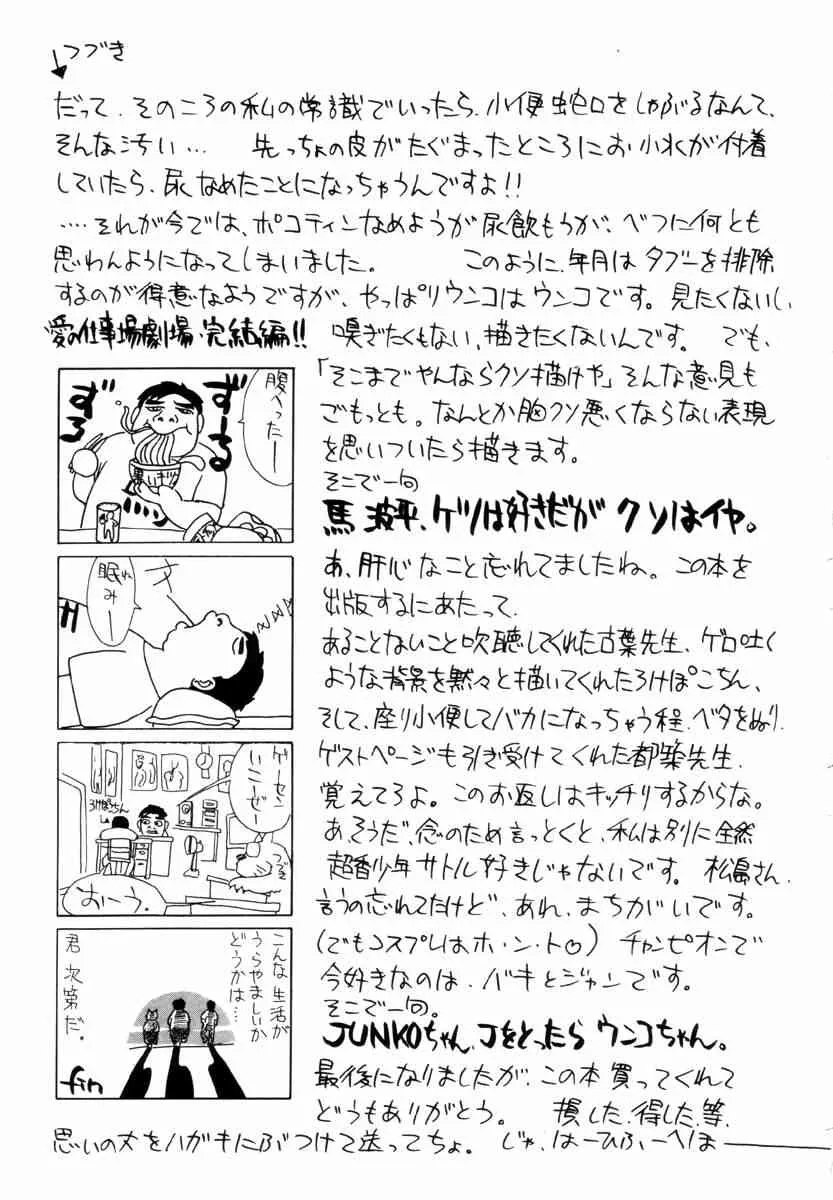 つづき
だって、そのころの私の常識でいったら、小便蛇口をしゃぶるなんて、
そんな汚い… 先っちょの皮がたぐまったところにお小水が付着
していたら、尿なめたことになっちゃうんですよ!!
‥‥それが今では、ポコティンなめようが尿飲もうが、べつに何とも
思わんようになってしまいました。 このように、年月はタブーを排除
するのが得意なようですが、やっぱりウンコはウンコです。見たくないし、
嗅ぎたくもない、描きたくないんです。 でも、
「そこまでやんならクソ描けや」そんな意見も
ごもっとも。なんとか胸クソ悪くならない表現
を思いついたら描きます。
そこで一句
馬並平、ケツは好きだが クソはイヤ。
あ、肝心なこと忘れてましたね。この本を
出版するにあたって、
あることないこと吹聴してくれた古葉先生、ゲロ吐く
ような背景を黙々と描いてくれたろけぽこちん、
そして、座り小便してバカになっちゃう程、ベタをぬり、
ゲストページも引き受けてくれた都築先生、
覚えてろよ。このお返しはキッチリするからな。
あ、そうだ、念のため言っとくと、私は別に全然
超香少年サトル好きじゃないです。松島さん、
言うの忘れてたけど、あれ、まちがいです。
(でもコスプレはホ・ン・ト♡) チャンピオンで
今好きなのは、バキとジャンです。
そこで一句。
JUNKOちゃん、Jをとったら ウンコちゃん。
最後になりましたが、この本買ってくれて
どうもありがとう。 損した、得した、等、
思いの丈をハガキにぶつけて送ってちょ。 じゃ、はーひふーへほー
愛の仕事場劇場・完結編!!
腹へったー
ずーる
ずる
眠みー
ゲーセンいこーぜー
つづき
ろけぽこちん
おーう。
こんな生活が
うらやましいか
どうかは…
君次第だ。
fin